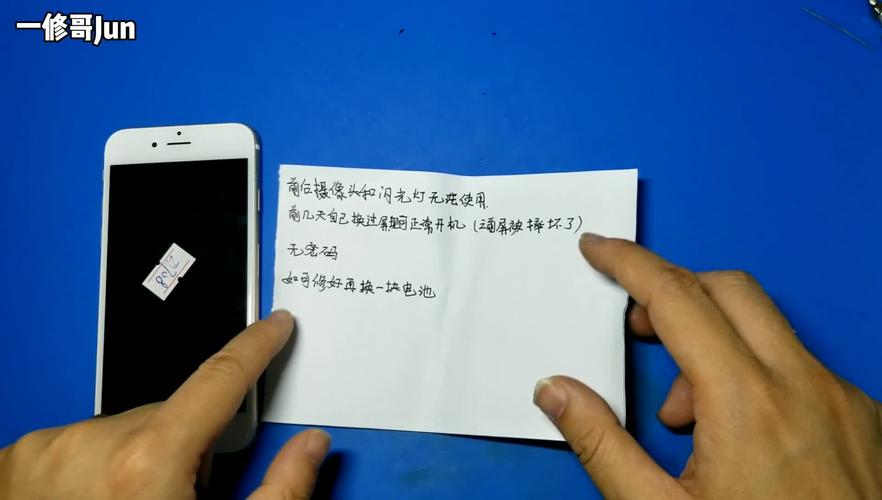 一修哥Jun
前后摄像头和闪光灯无法使用.
前几天自己换过屏幕可正常开机（之前屏被摔坏了）
无密码
如可修好再换一块电池